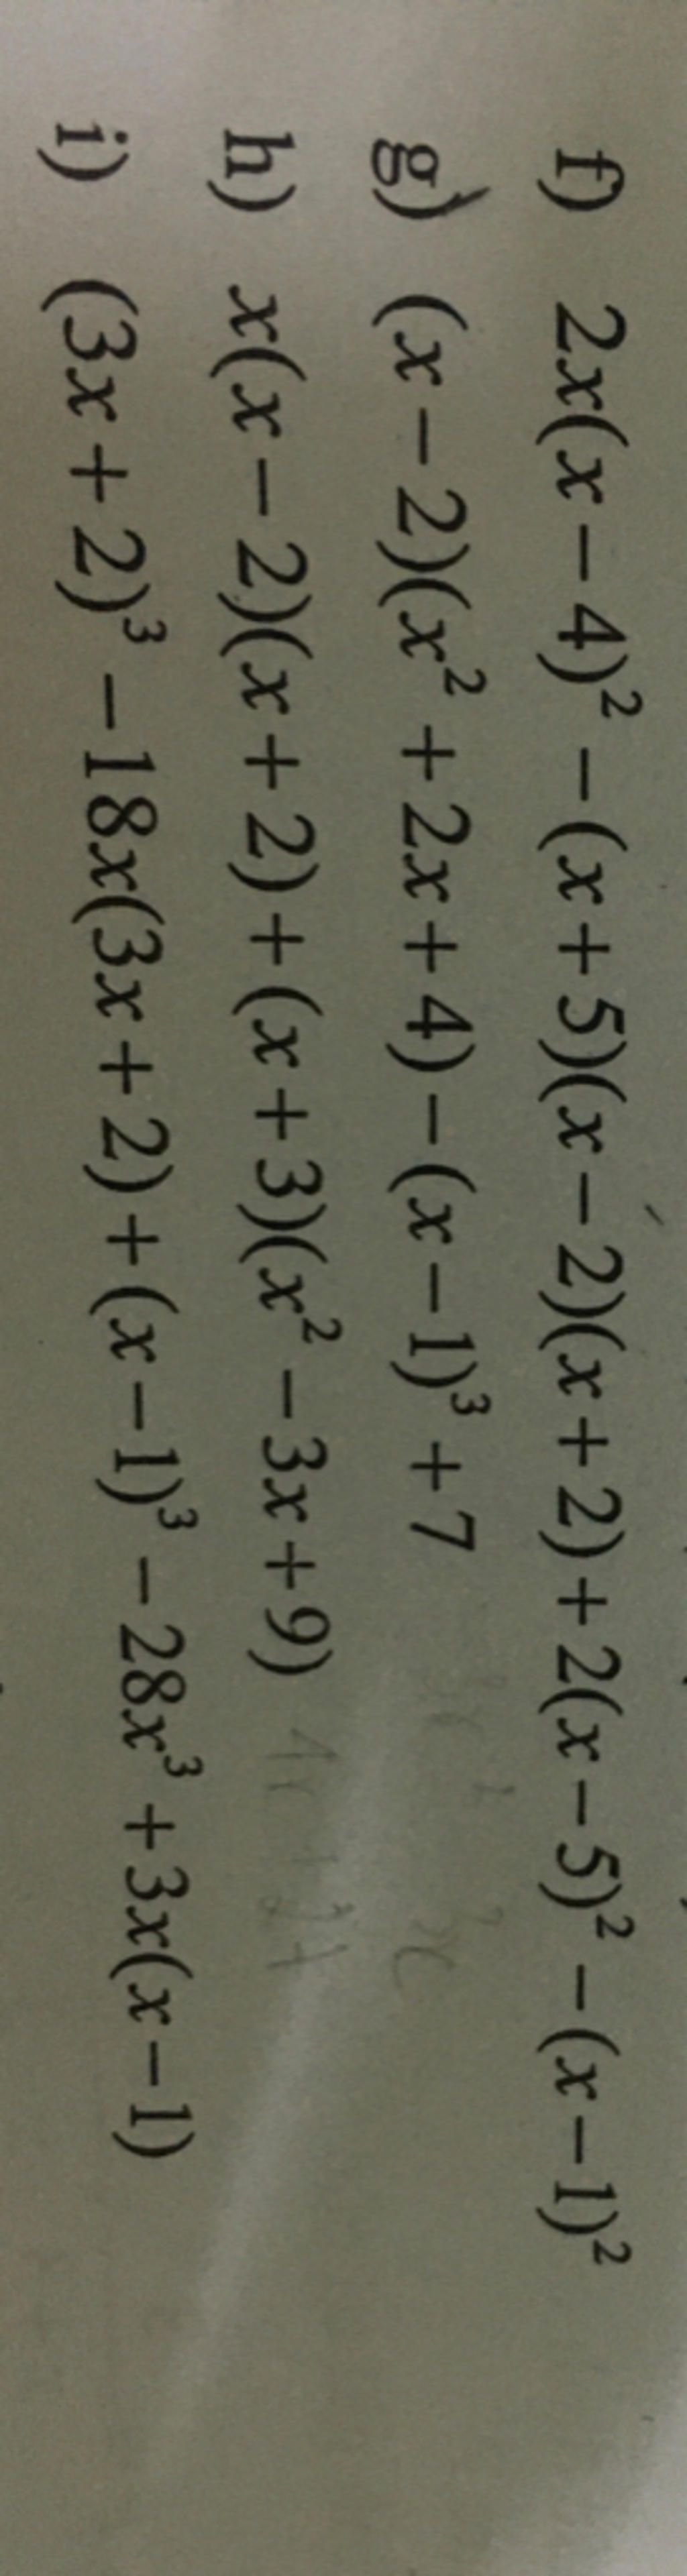 f) 2x(x-4)² -(x+5)(x-2)(x+2)+2(x-5)² -(x-1)²
g) (x-2)(x² +2x+4)-(x-1)³ +7
h) x(x-2)(x+2)+(x+3)(x² -3x+9)
i) (3x+2)³ -18x(3x+2)+(x-1)³ -28x³ +3x(x-1)